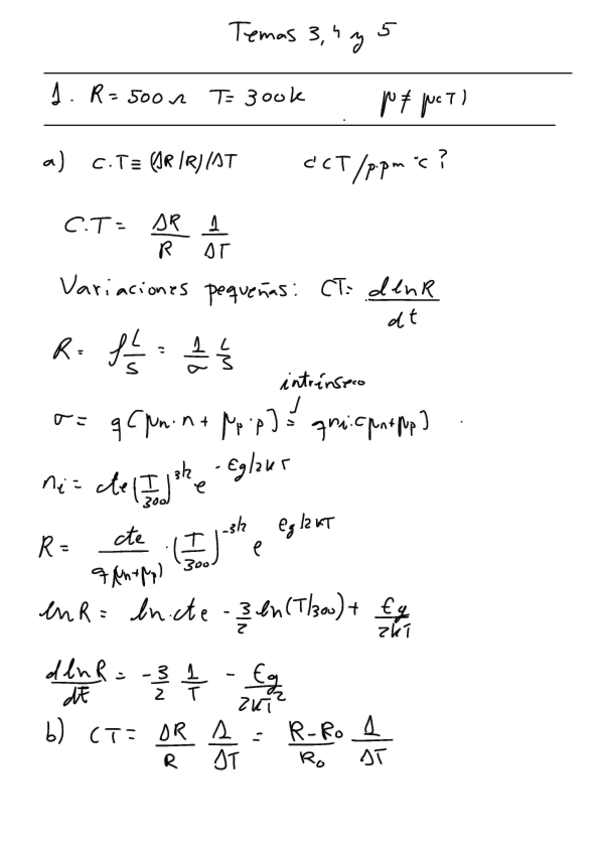 Temas 3, 4 y 5
1. R = 500 Ω T = 300K μ ≠ μ(T)
a) C.T ≡ (ΔR/R)/ΔT d CT/ppm °C?
C.T = ΔR/R 1/ΔT
Variaciones pequeñas: CT = d ln R/dt
R = ρ L/S = 1/σ L/S
intrínseco
σ = q(μn·n + μp·p) = q ni·(μn+μp)
ni = cte (T/300)^3/2 e^-Eg/2KT
R = cte/q(μn+μp) · (T/300)^-3/2 e^Eg/2KT
ln R = ln·cte - 3/2 ln(T/300) + Eg/2KT
d ln R/dt = -3/2 1/T - Eg/2KT²
b) CT = ΔR/R 1/ΔT = R-R₀/R₀ 1/ΔT